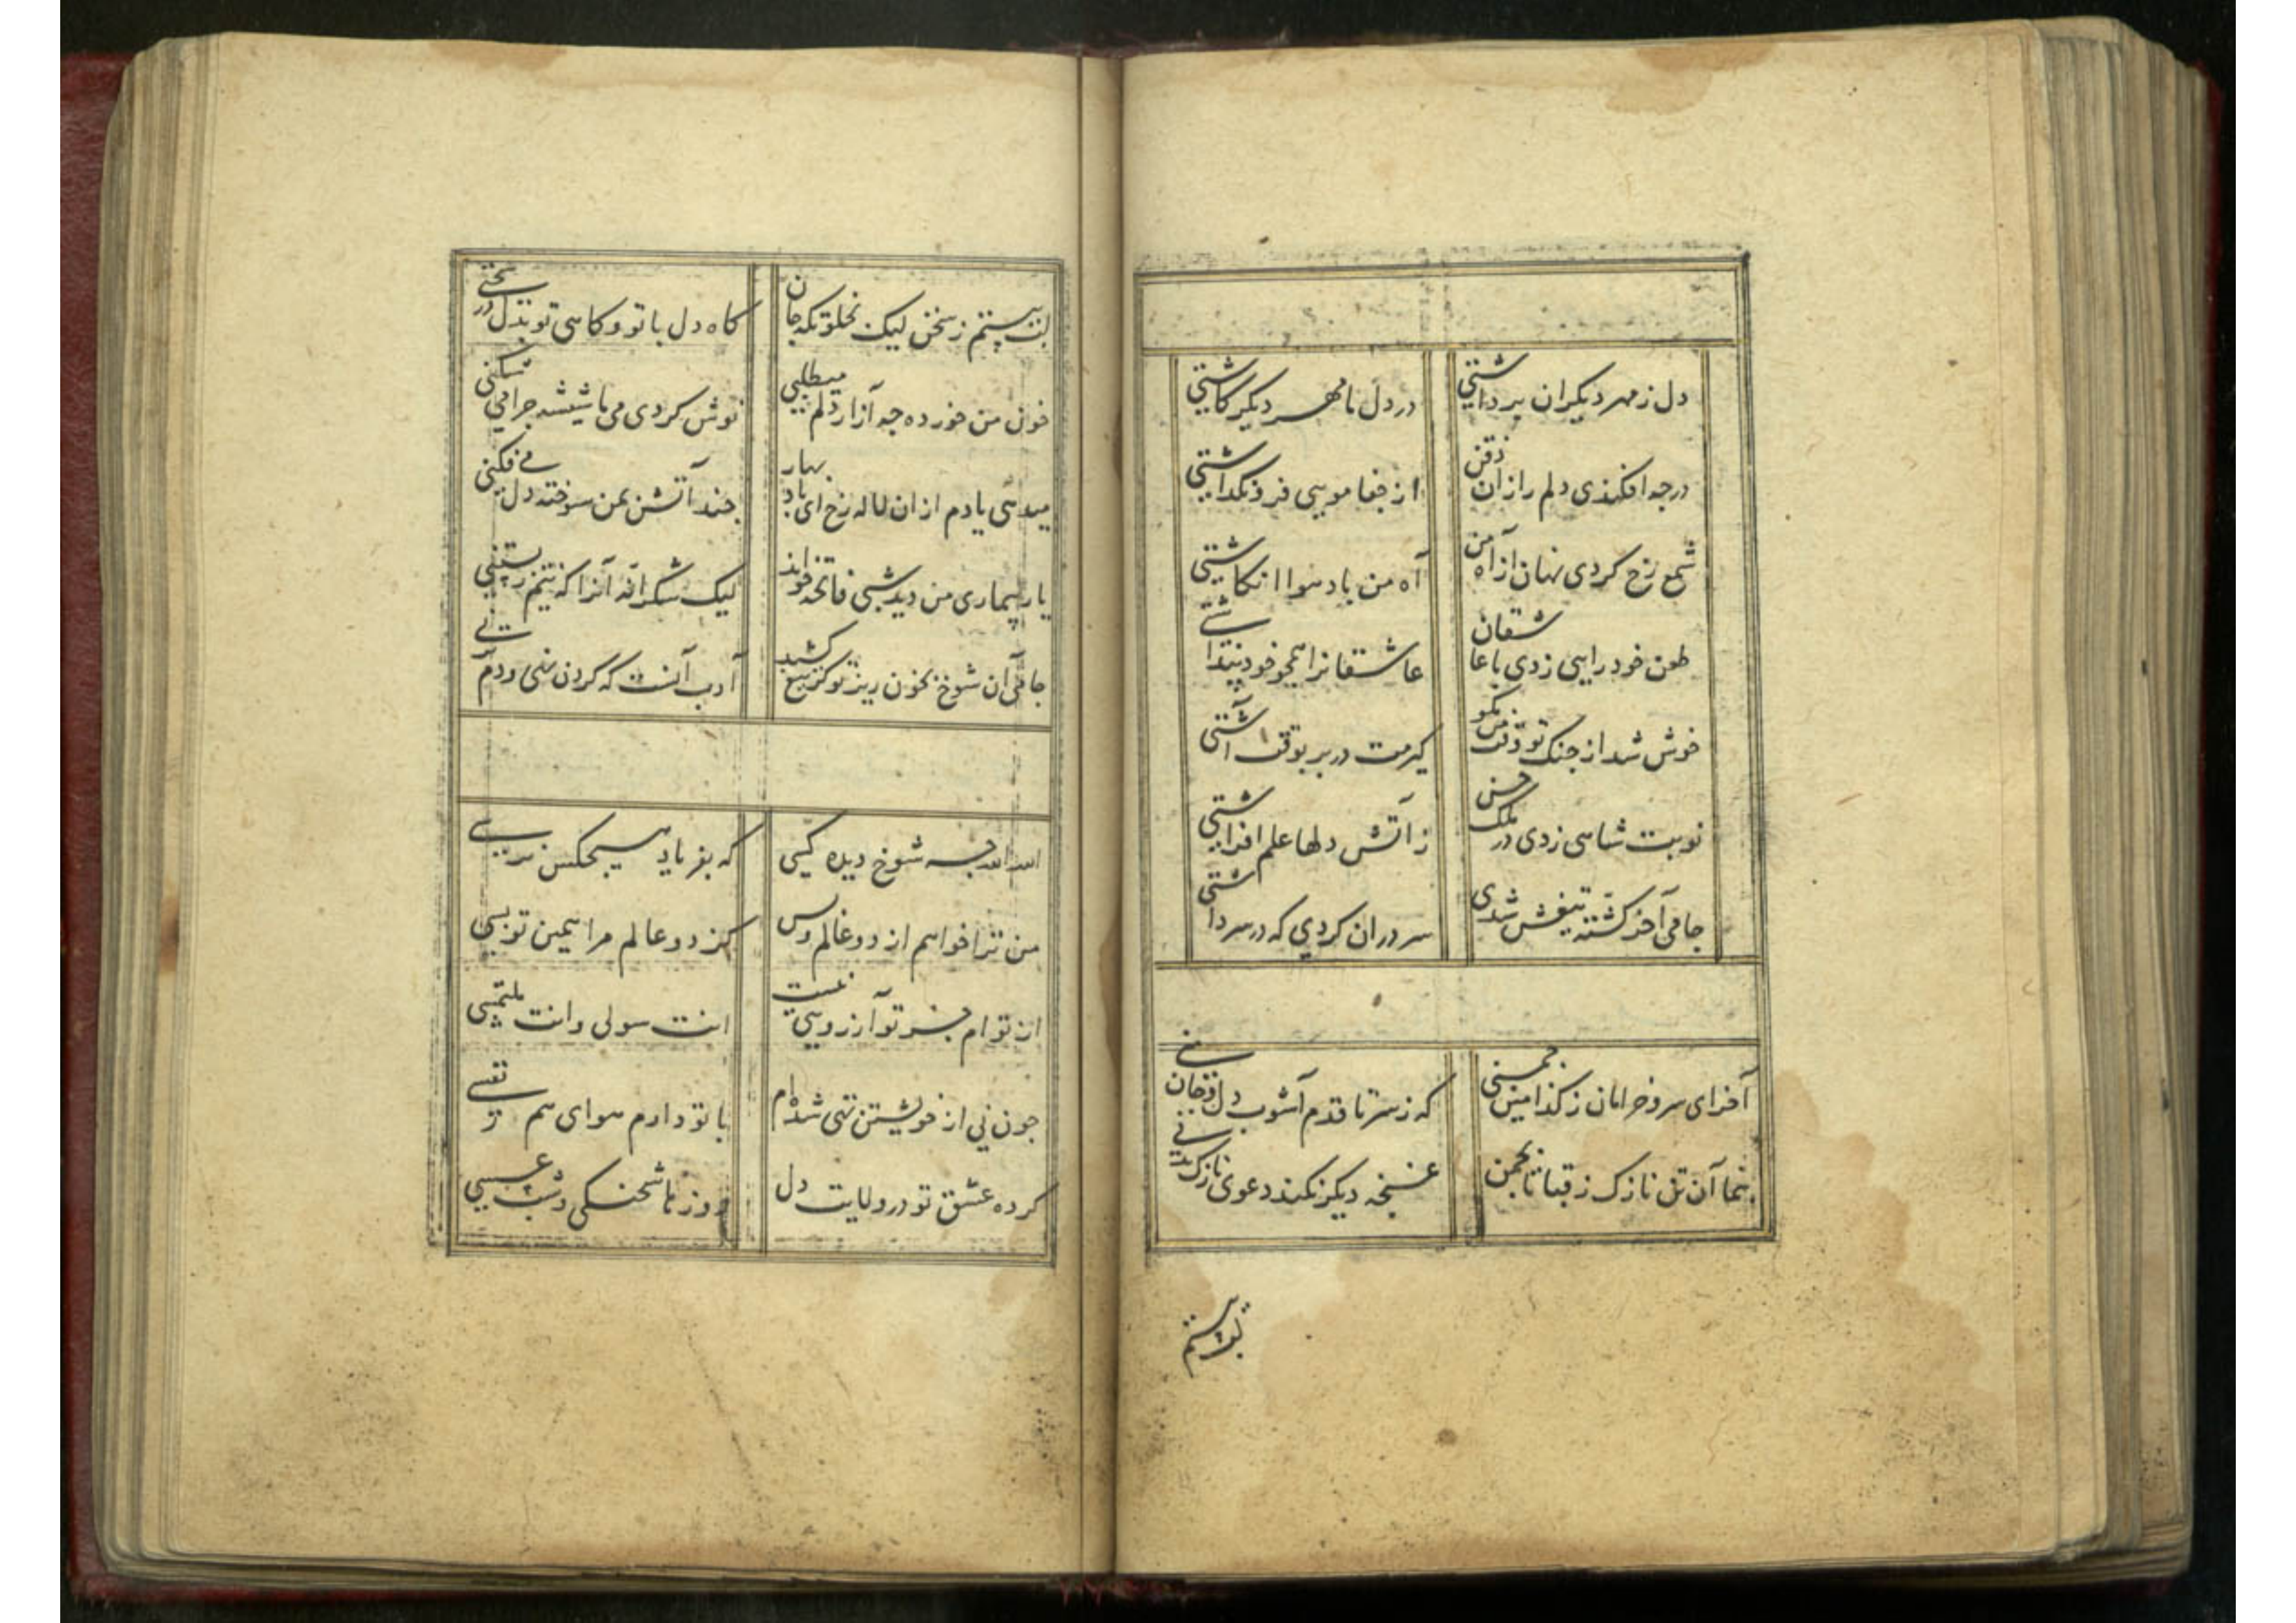 دل ز مهر دیکران برداشتی در دل ما مهر دیکر کاشتی
در چه افکندی دلم را زان ذقن از جفا مویی فرو نکداشتی
شمع رخ کردی نهان از آه من آه من باد هوا انکاشتی
طعن خود رایی زدی با عاشقان عاشقانرا همچو خود پنداشتی
خوش شد از جنک تو وقت من کیرمت در بر بوقت آشتی
نوبت شاهی زدی در ملک حسن ز آتش دلها علم افراشتی
جامی آخر کشته تیغش شدی سر در ان کردی که در سر داشتی
آخر ای سرو خرامان ز کدامین چمنی که ز سر تا قدم آشوب دل و جان منی
بنما آن تن نازک ز قبا تا بچمن غنچه دیکر نکند دعوی نازک بدنی
بت پرستم
بت پرستم ز سخن لیک بخلوتکه جان کاه دل با تو و کاهی تو بدل در سخنی
خون من خورده چه آزار دلم میطلبی نوش کردی می ما شیشه چرا می شکنی
میدهی یادم از ان لاله رخ ای باد بهار چند آتش بمن سوخته دل می فکنی
یار بیماری من دید شبی فاتحه خواند لیک شکرانه آنرا که نیم زیستنی
جامی آن شوخ بخون ریز تو کر تیغ کشید ادب آنست که کردن نهی و دم نزنی
الله الله چه شوخ دیده کسی که بفریاد هیچکس نرسی
من ترا خواهم از دو عالم وبس کز دو عالم مرا همین تو بسی
از توام جز تو آرزویی نیست انت سولی وانت ملتمسی
چون نی از خویشتن تهی شده ام با تو دارم هوای هم نفسی
کرده عشق تو در ولایت دل روزها شحنکی و شب عسسی